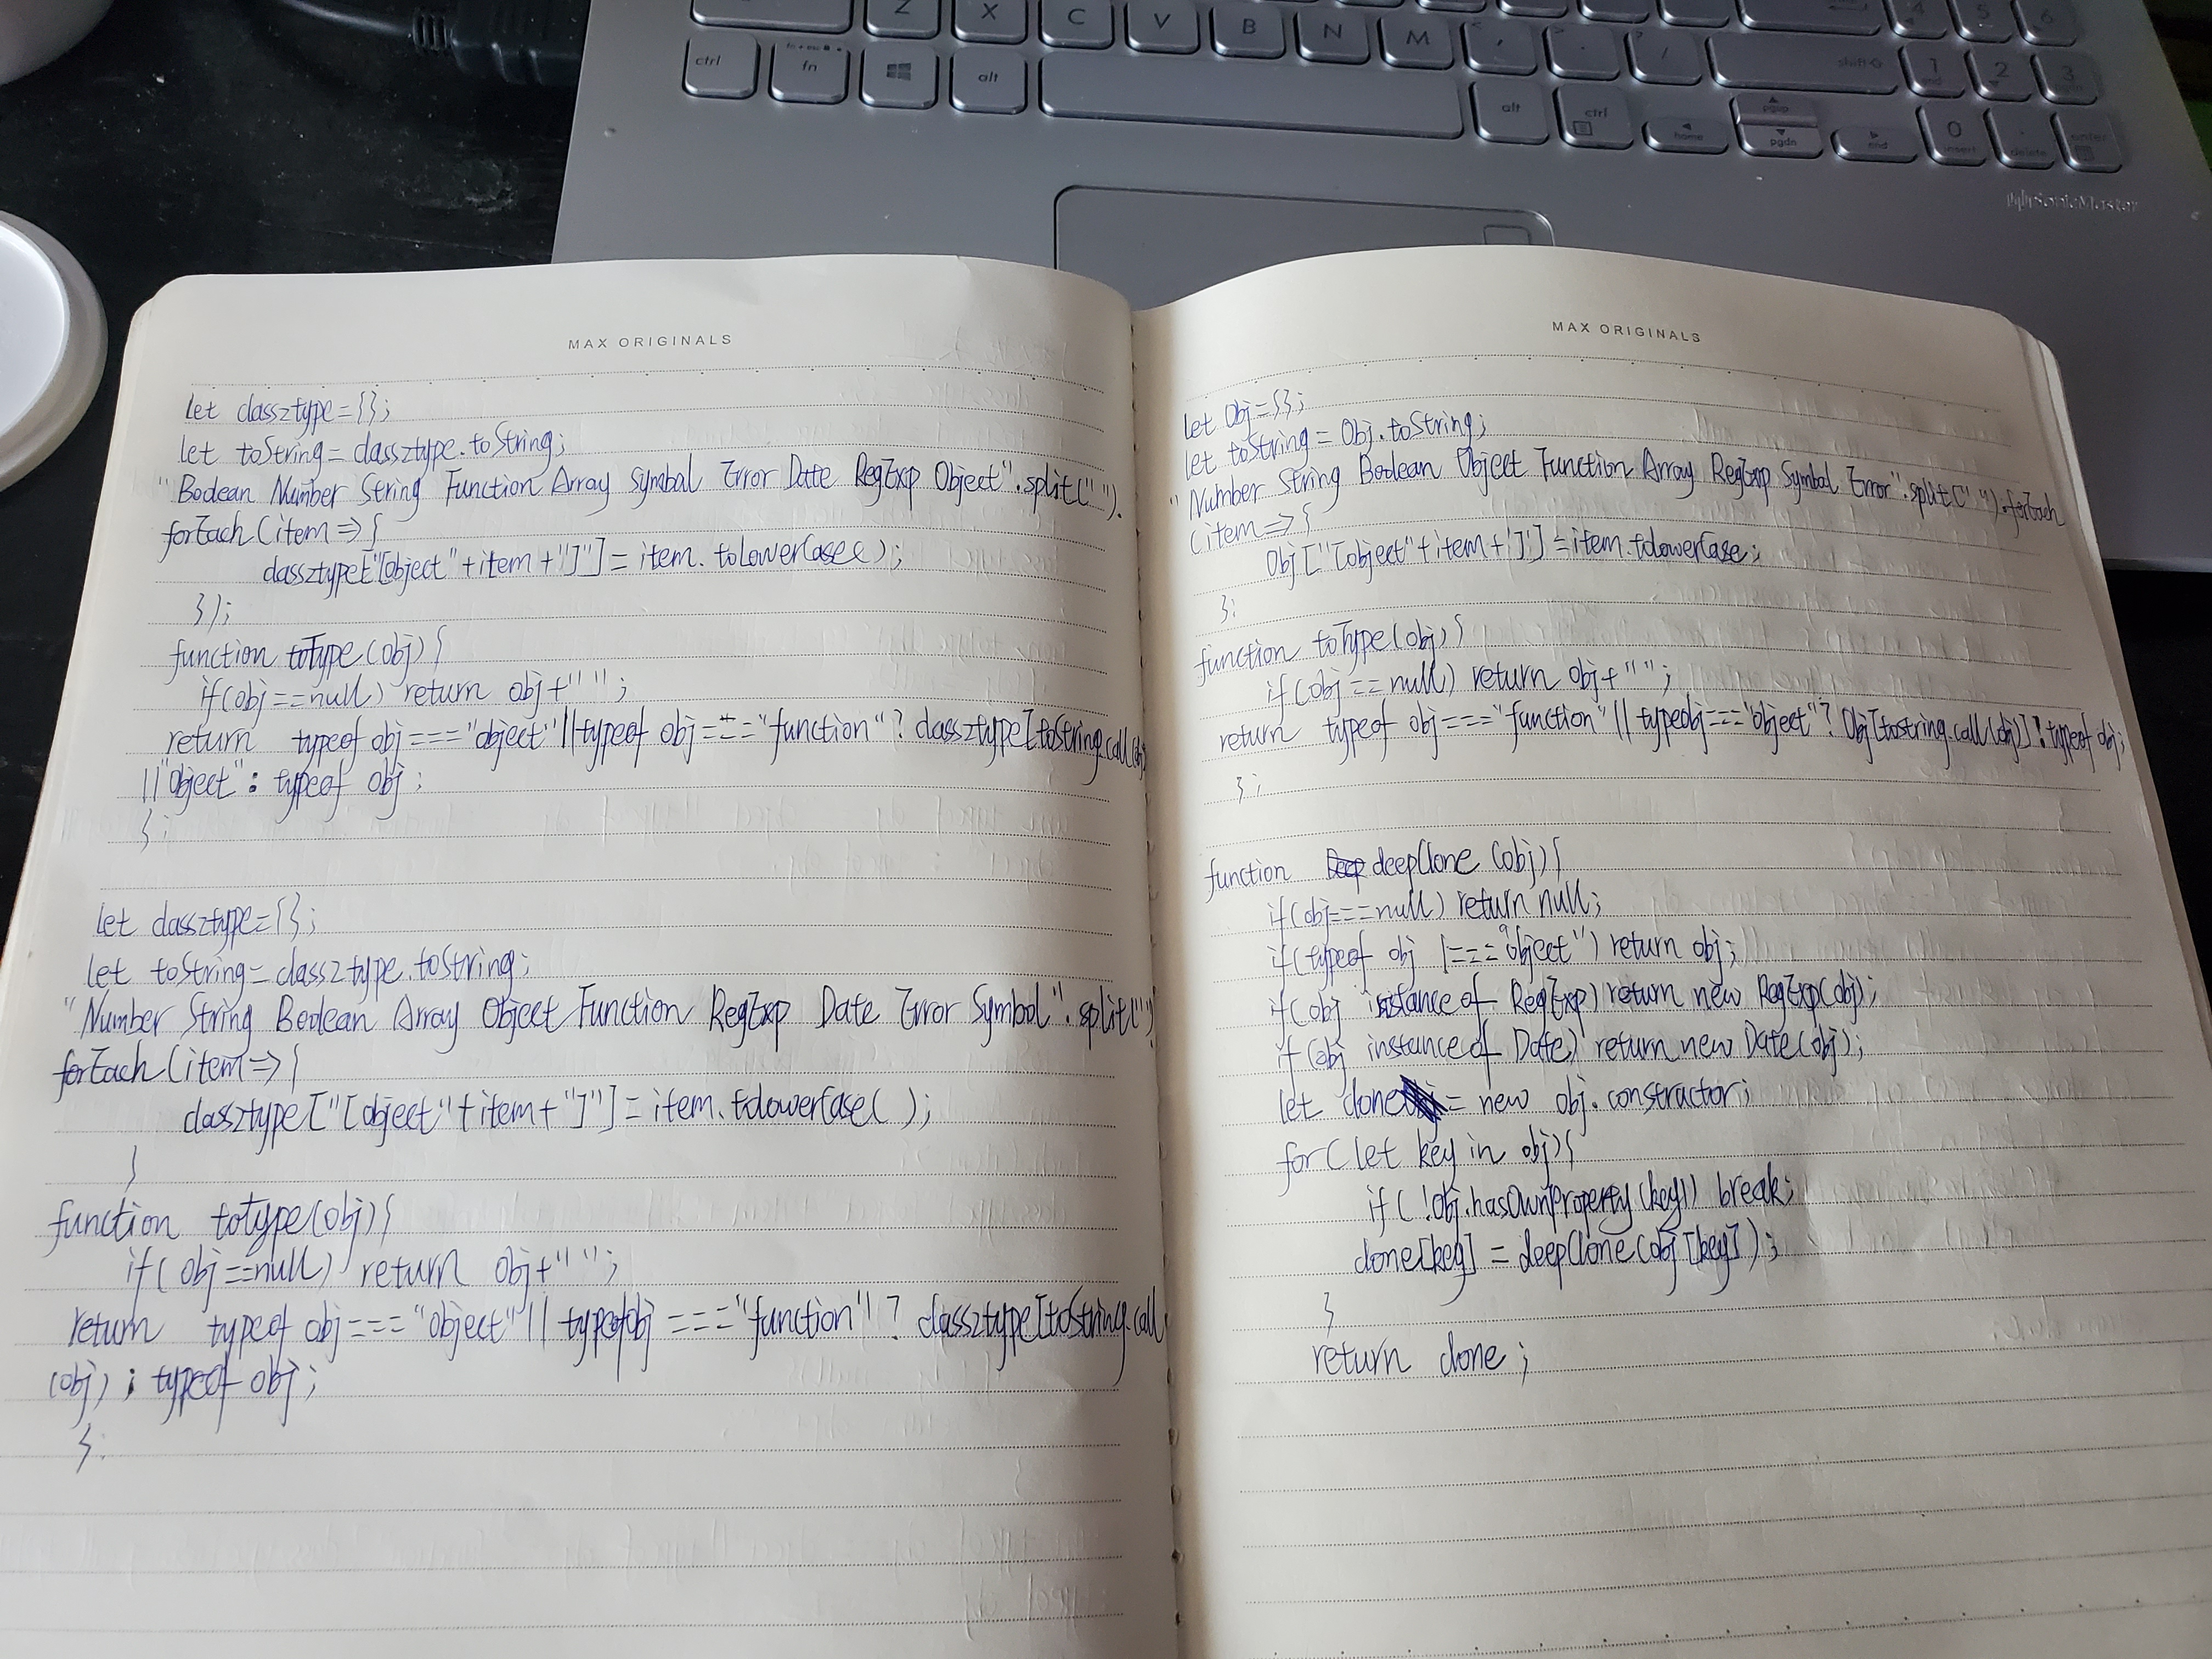 Z X C V B N M
ctrl fn alt alt ctrl home pgup pgdn end shift 1 end 2 3 0 insert . delete enter 4 5 6
SonicMaster
MAX ORIGINALS
let classztype={};
let toString=classztype.toString;
"Boolean Number String Function Array Symbol Error Date RegExp Object".split(" ").
forEach(item=>{
classztype["[object"+item+"]"]=item.toLowerCase();
});
function toType(obj){
if(obj==null) return obj+"";
return typeof obj==="object"||typeof obj==="function"? classztype[toString.call(obj
||"object": typeof obj;
};
let classztype={};
let toString=classztype.toString;
"Number String Boolean Array Object Function RegExp Date Error Symbol".split(" ")
forEach(item=>{
classztype["[object"+item+"]"]=item.toLowerCase();
}
function toType(obj){
if(obj==null) return obj+"";
return typeof obj==="object"|| typeof obj==="function"? classztype[toString.call
(obj) : typeof obj;
};
MAX ORIGINALS
let Obj={};
let toString=Obj.toString;
"Number String Boolean Object Function Array RegExp Symbol Error".split(" ").forEach
(item=>{
Obj["[object"+item+"]"]=item.toLowerCase;
};
function toType(obj){
if(obj==null) return obj+"";
return typeof obj==="function"|| typeobj==="object"? Obj[toString.call(obj)]:typeof obj;
};
function deepClone(obj){
if(obj===null) return null;
if(typeof obj !==="object") return obj;
if(obj instance of RegExp) return new RegExp(obj);
if(obj instance of Date) return new Date(obj);
let clone= new obj.constractor;
for(let key in obj){
if(!obj.hasOwnProperty(key)) break;
clone[key]=deepClone(obj[key]);
}
return clone;